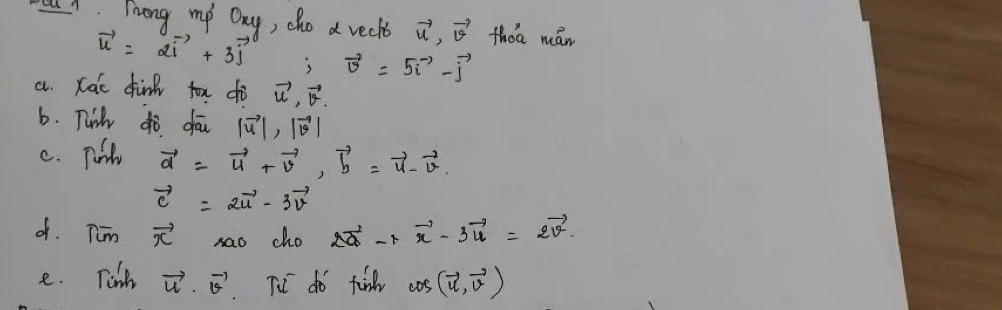 Câu 1. Trong mp Oxy, cho 2 vectơ \vec{u}, \vec{v} thỏa mãn
\vec{u} = 2\vec{i} + 3\vec{j} ; \vec{v} = 5\vec{i} - \vec{j}
a. Xác định tọa độ \vec{u}, \vec{v}.
b. Tính độ dài |\vec{u}|, |\vec{v}|
c. Tính \vec{a} = \vec{u} + \vec{v}, \vec{b} = \vec{u} - \vec{v}.
\vec{c} = 2\vec{u} - 3\vec{v}
d. Tìm \vec{x} sao cho 2\vec{a} + \vec{x} - 3\vec{u} = 2\vec{v}.
e. Tính \vec{u} . \vec{v}. Từ đó tính cos(\vec{u}, \vec{v})